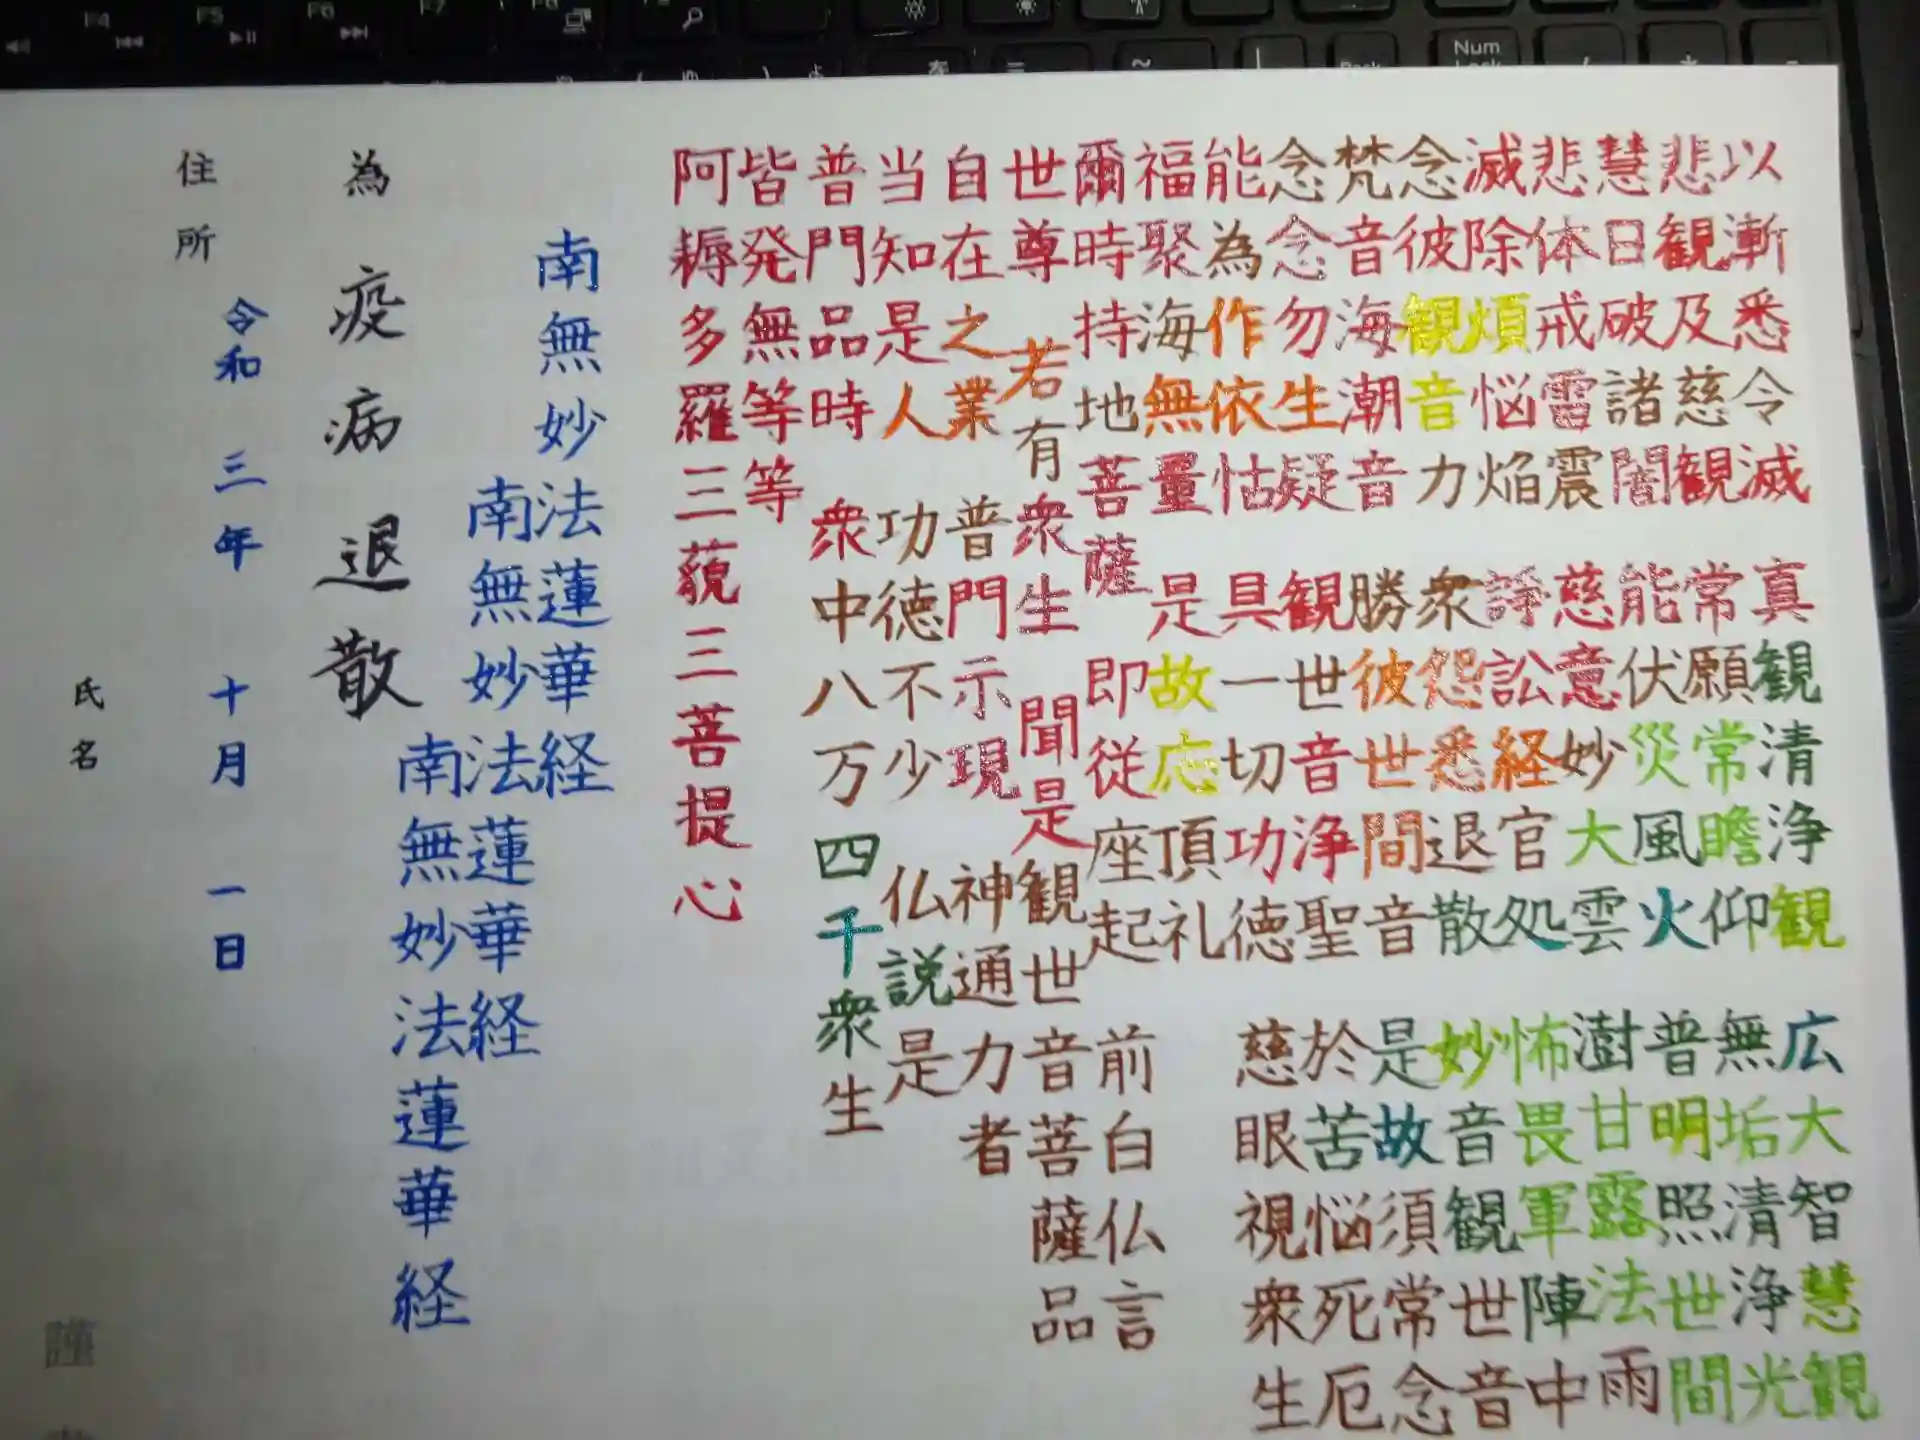 以漸悉令滅 真観清浄観 広大智慧観
悲観及慈観 常願常瞻仰 無垢清浄光
慧日破諸闇 能伏災風火 普明照世間
悲体戒雷震 慈意妙大雲 澍甘露法雨
滅除煩悩焔 諍訟経官処 怖畏軍陣中
念彼観音力 衆怨悉退散 妙音観世音
梵音海潮音 勝彼世間音 是故須常念
念念勿生疑 観世音浄聖 於苦悩死厄
能為作依怙 具一切功徳 慈眼視衆生
福聚海無量 是故応頂礼
爾時持地菩薩 即従座起 前白仏言
世尊 若有衆生 聞是観世音菩薩品
自在之業 普門示現 神通力者
当知是人 功徳不少 仏説是
普門品時 衆中八万四千衆生
皆発無等等
阿耨多羅三藐三菩提心
南無妙法蓮華経
南無妙法蓮華経
南無妙法蓮華経
為 疫病退散
令和 三年 十月 一日
住所
氏名
謹
F4
F5
F6
F7
Num Lock